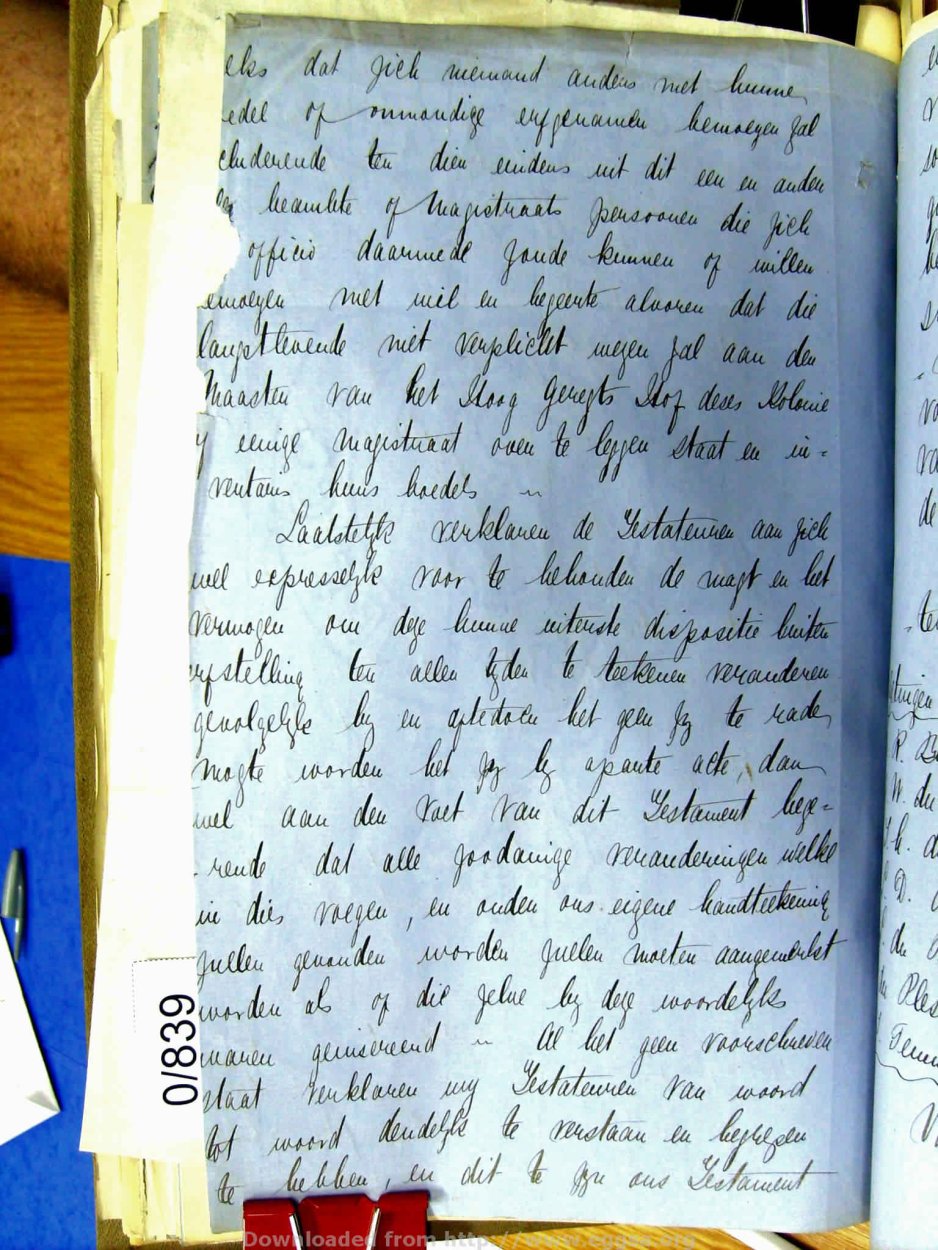 elks dat zich niemand anders met hunne
edel of onmondige erfgenamen bemoeyen zal
cluderende ten dien eindens uit dit een en ander
beambte of Magistraats persoonen die zich
officio daarmede zoude kunnen of willen
emoeyen met wil en begeerte alvoren dat die
langstlevende niet verplicht wezen zal aan den
Maasten van het Hoog Geregts Hof deses Kolonie
eenige Magistraat over te leggen Staat en in-
ventaris huns boedels ~
Laatstelyk verklaren de Testateuren aan zich
wel expresselyk voor te behouden de magt en het
vermogen om deze hunne uiterste dispositie buiten
erfstelling ten allen tyden te teekenen veranderen
gevolgelyk by en aftedoen het geen zy te rade
mogte worden het zy by aparte acte, dan
wel aan den Voet van dit Testament bege-
rende dat alle zoodanige veranderingen welke
in dies voegen, en onder ons eigene handteekening
zullen gevonden worden zullen moeten aangemerkt
worden als of die zelve by deze woordelyks
waren geinsereerd ~ Al het geen voorschreven
staat verklaren wy Testateuren van woord
tot woord dendelyk te verstaan en begrepen
te hebben, en dit te zyn ons Testament
0/839
R.
W. du
D.
Ples
Downloaded from http://www.eggsa.org